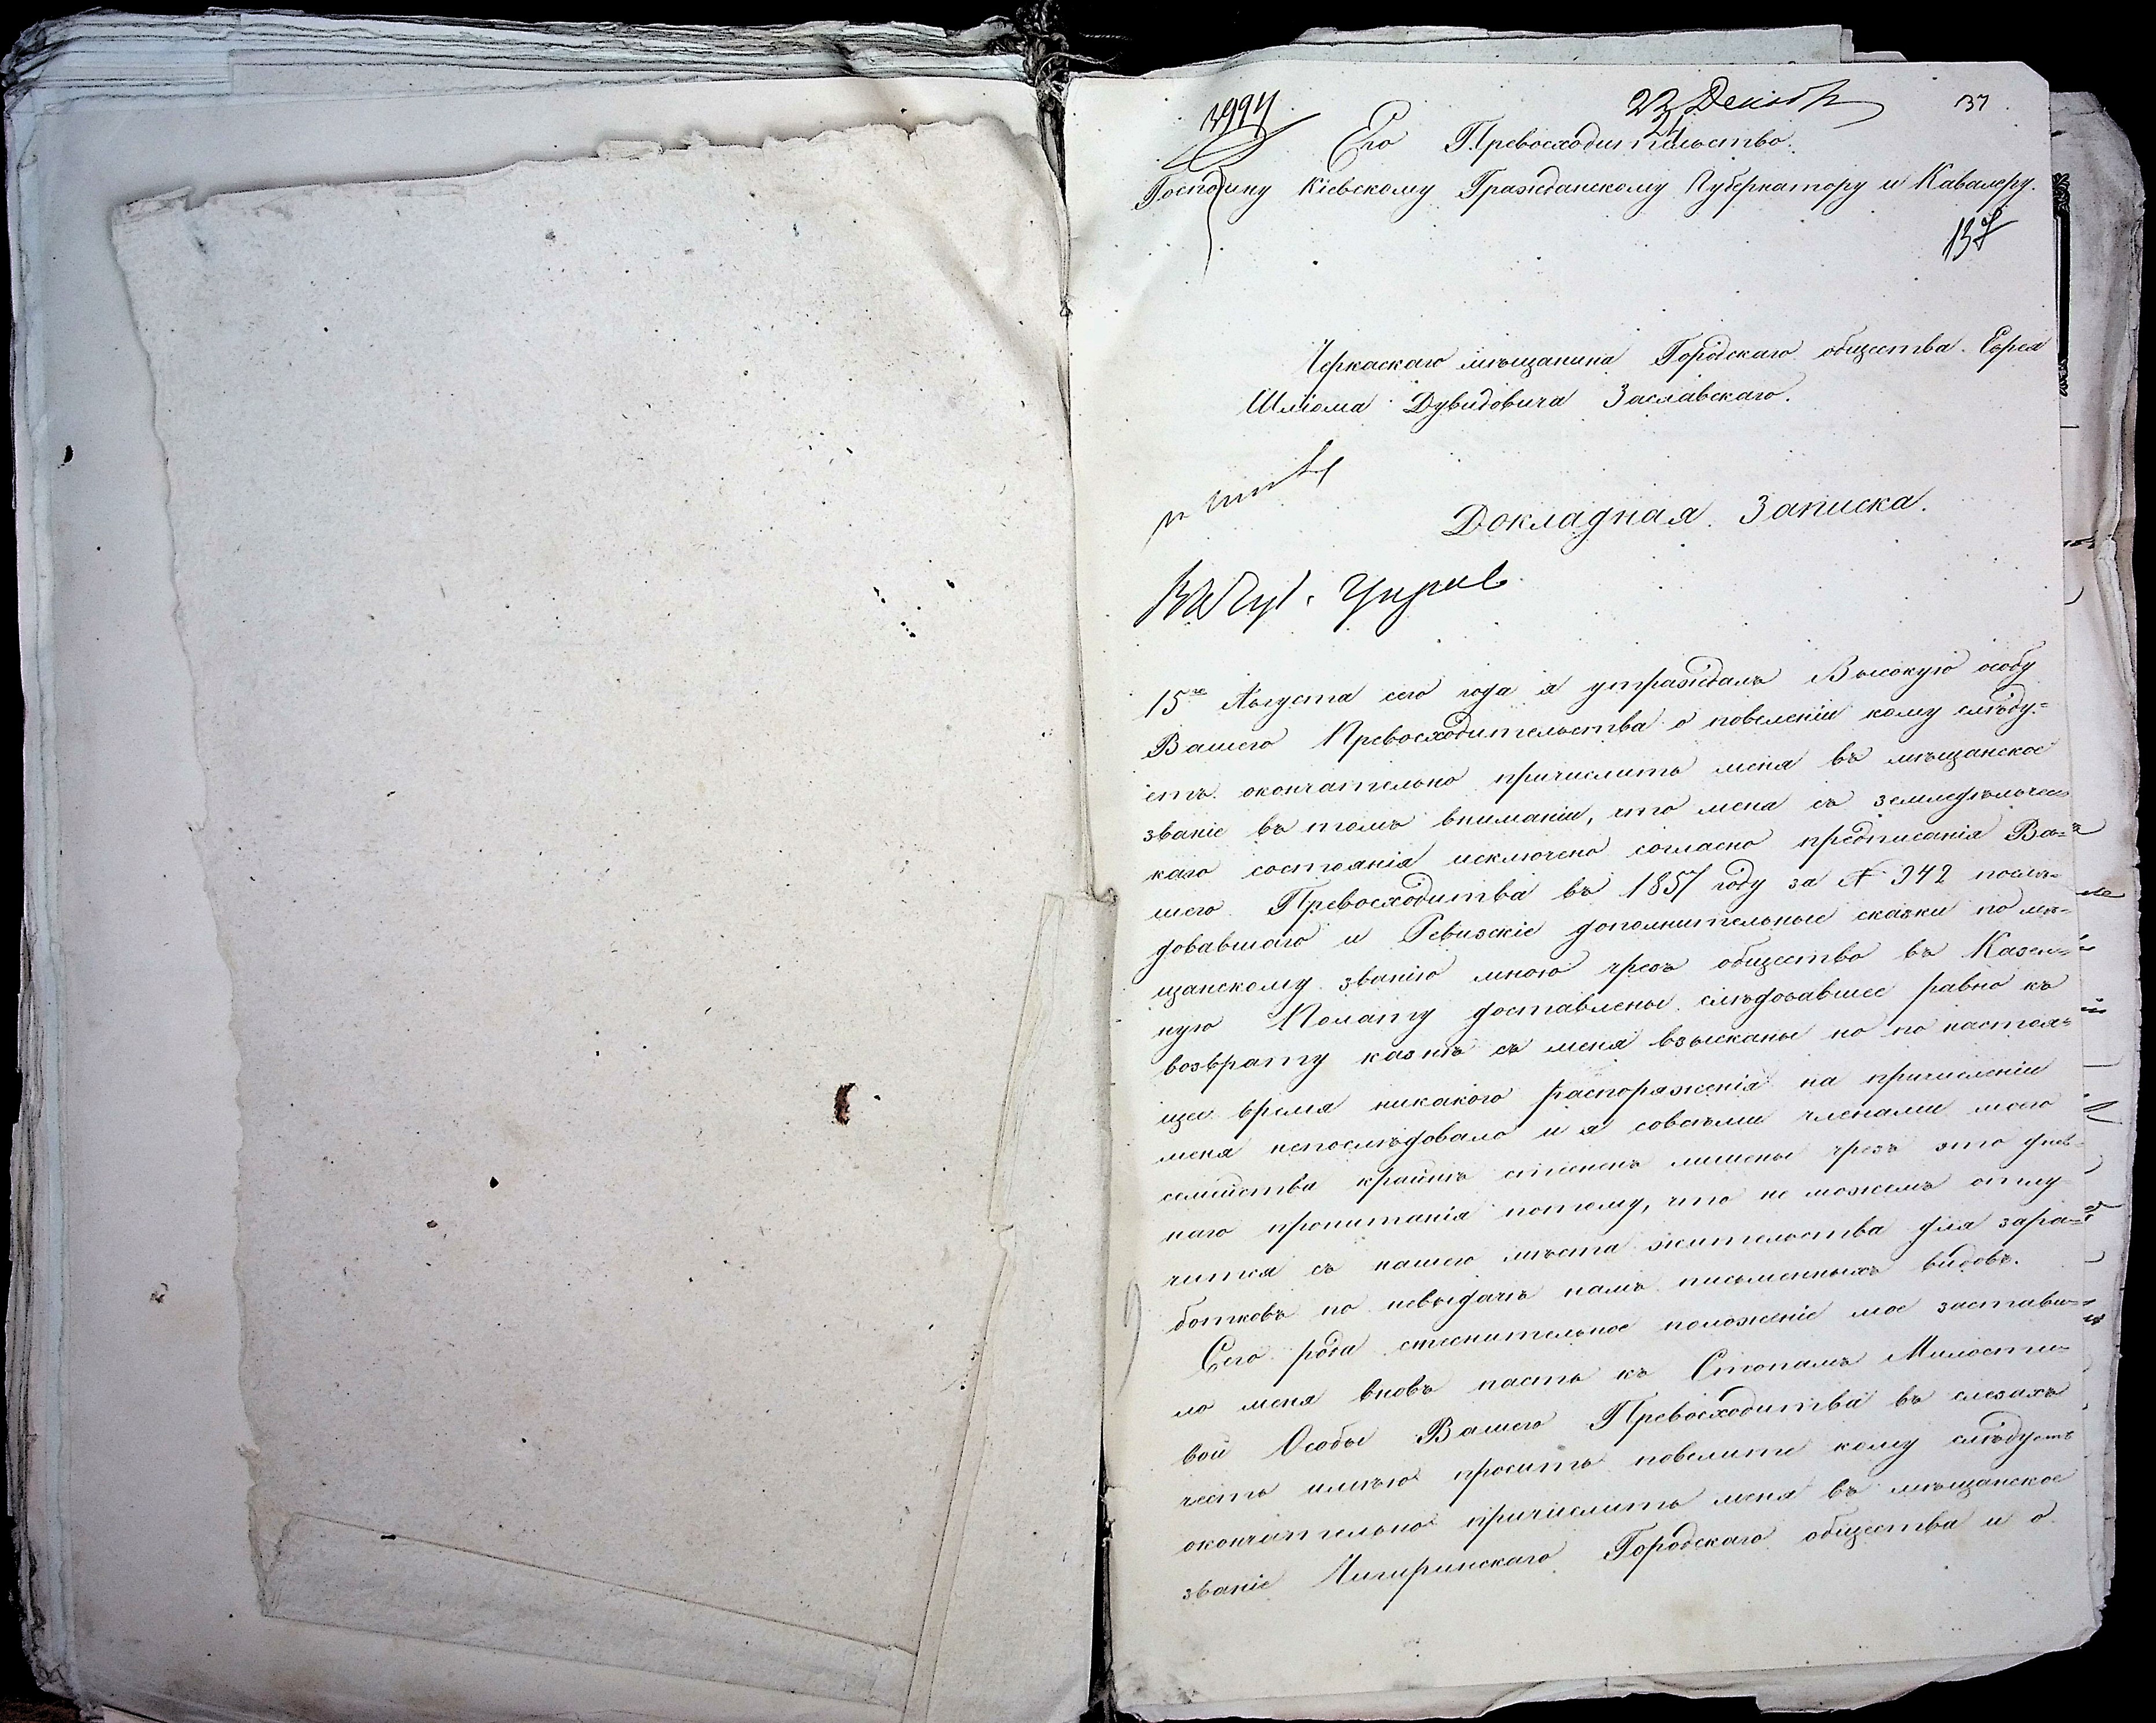 23 Декабр
137
Его Превосходительство
Господину Кіевскому Гражданскому Губернатору и Кавалеру.
137
Черкаскаго мѣщанина Городскаго общества Еврея
Шліома Дувидовича Заславскаго.
Докладная Записка.
15го Августа сего года я утраждалъ Высокую особу
Вашего Превосходительства о повеленіи кому слѣду=
етъ окончательно причислить меня въ мѣщанское
званіе въ томъ вниманіи, что меня съ земледѣльчес=
каго состоянія исключено согласно предписанія Ва=
шего Превосходитва въ 1857 году за № 942 послѣ=
довавшаго и Ревизскіе дополнительные сказки по мѣ=
щанскому званію мною чрезъ общество въ Казен=
ную Полату доставлены слѣдовавшее равно къ
возврату казнѣ съ меня взысканы но по настоя=
щее время никакого распоряженія на причисленіи
меня непослѣдовало и я совсѣми членами моего
семѣйства крайнѣ стеснены лишены чрезъ это днев=
наго пропитанія потому, что не можемъ отлу
читься съ нашего мѣста жительства для зара=
ботковъ по невыдачѣ намъ письменныхъ видовъ.
Сего рода стеснительное положеніе мое застави=
ло меня вновь пасть къ Стопамъ Милости=
вой Особы Вашего Превосходитва въ слезахъ
честь имѣю просить повелите кому слѣдуетъ
окончательно причислить меня въ мѣщанское
званіе Чигиринскаго Городскаго общества и о